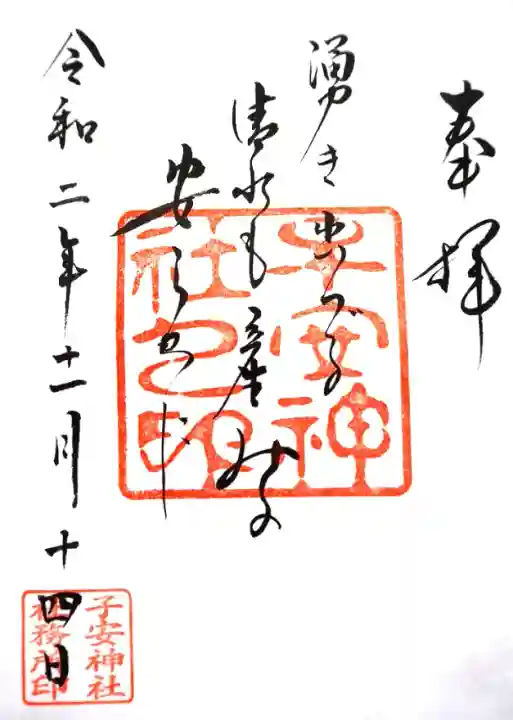 奉拝
湧き出づる
清水も産の
安らかに
令和二年十一月十四日
子安神社之印
子安神社
社務所印